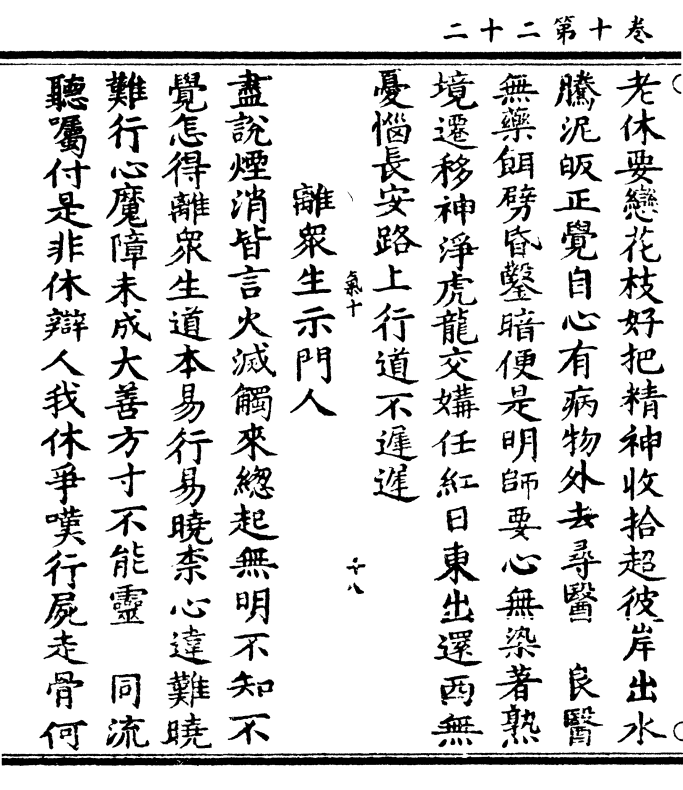 卷十第二十二
老休要戀花枝好把精神收拾超彼岸出水
騰泥皈正覺自心有病物外去尋醫　良醫
無藥餌劈昏鑿暗便是明師要心無染著熟
境遷移神淨虎龍交媾任紅日東出還西無
憂惱長安路上行道不遲遲
氣十
十八
離眾生示門人
盡說煙消皆言火滅觸來緫起無明不知不
覺怎得離眾生道本易行易曉柰心違難曉
難行心魔障未成大善方寸不能靈　同流
聽囑付是非休辯人我休爭嘆行屍走骨何